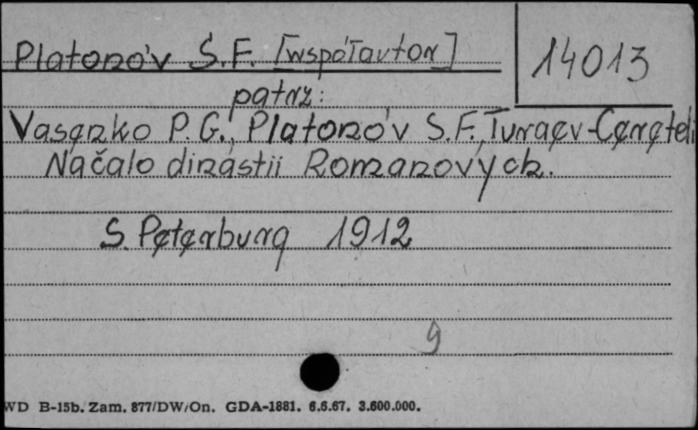 Platonóv S.F. [współautor]
14013
patrz:
Vasenko P.G., Platonóv S.F., Turaev-Cereteli
Načalo dinastii Romanovych.
S. Peterburg 1912
9
WD B-15b. Zam. 877/DW/On. GDA-1881. 6.6.67. 3.600.000.